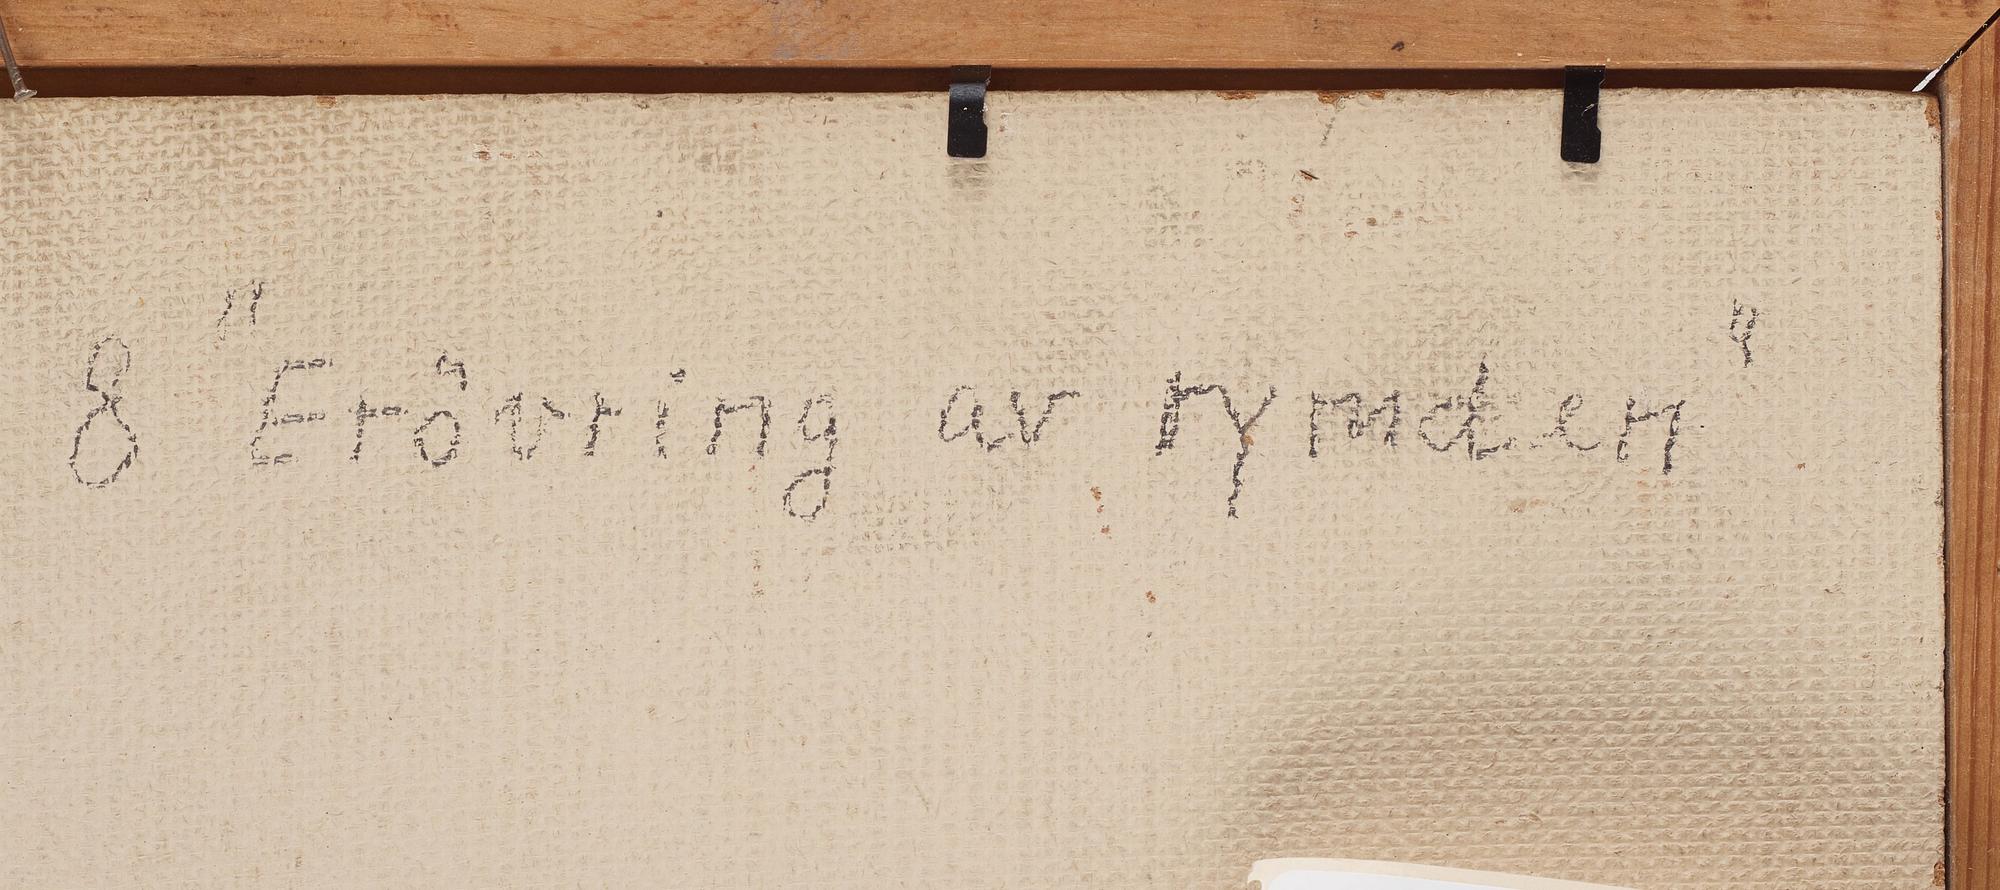 8 "Erövring av rymden"